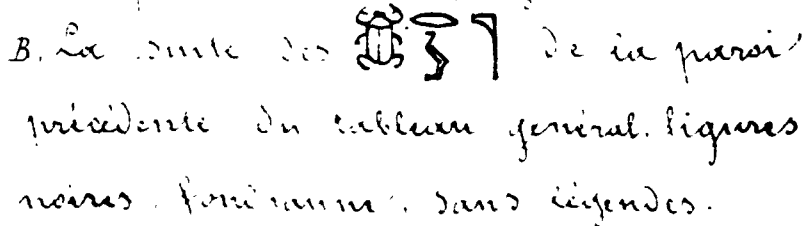 B. La suite des 𓆣𓂋𓂡𓊹 de la paroi
précédente du tableau général. figures
noires. fond jaune. sans légendes.